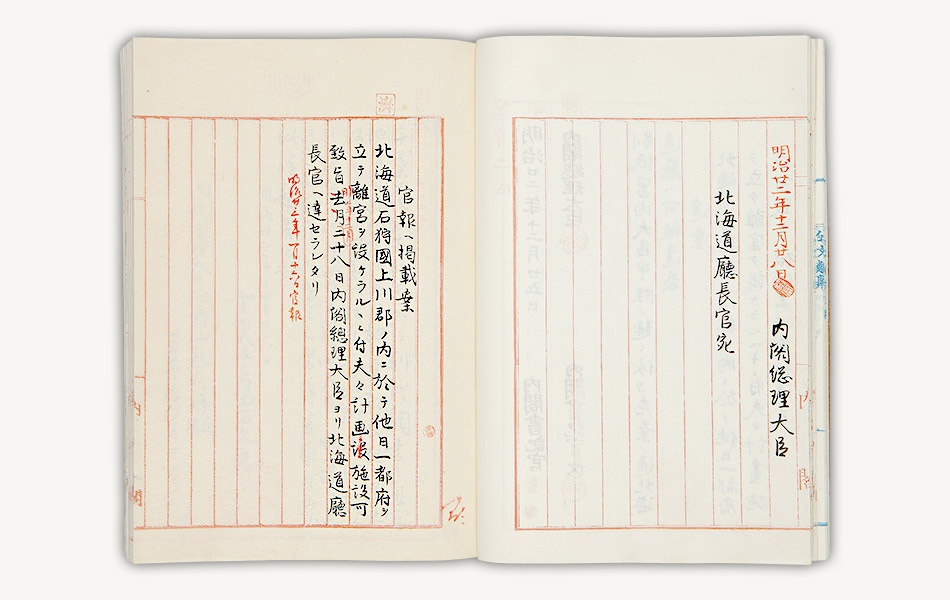 明治廿二年十二月廿八日
内閣総理大臣
北海道廳長官宛
官報ヘ掲載案
北海道石狩國上川郡ノ内ニ於テ他日一都府ヲ
立テ離宮ヲ設ケラルヽニ付夫々計画施設可
致旨去月二十八日内閣總理大臣ヨリ北海道廳
長官ヘ達セラレタリ
明治廿三年一月十六日官報
内閣
内閣